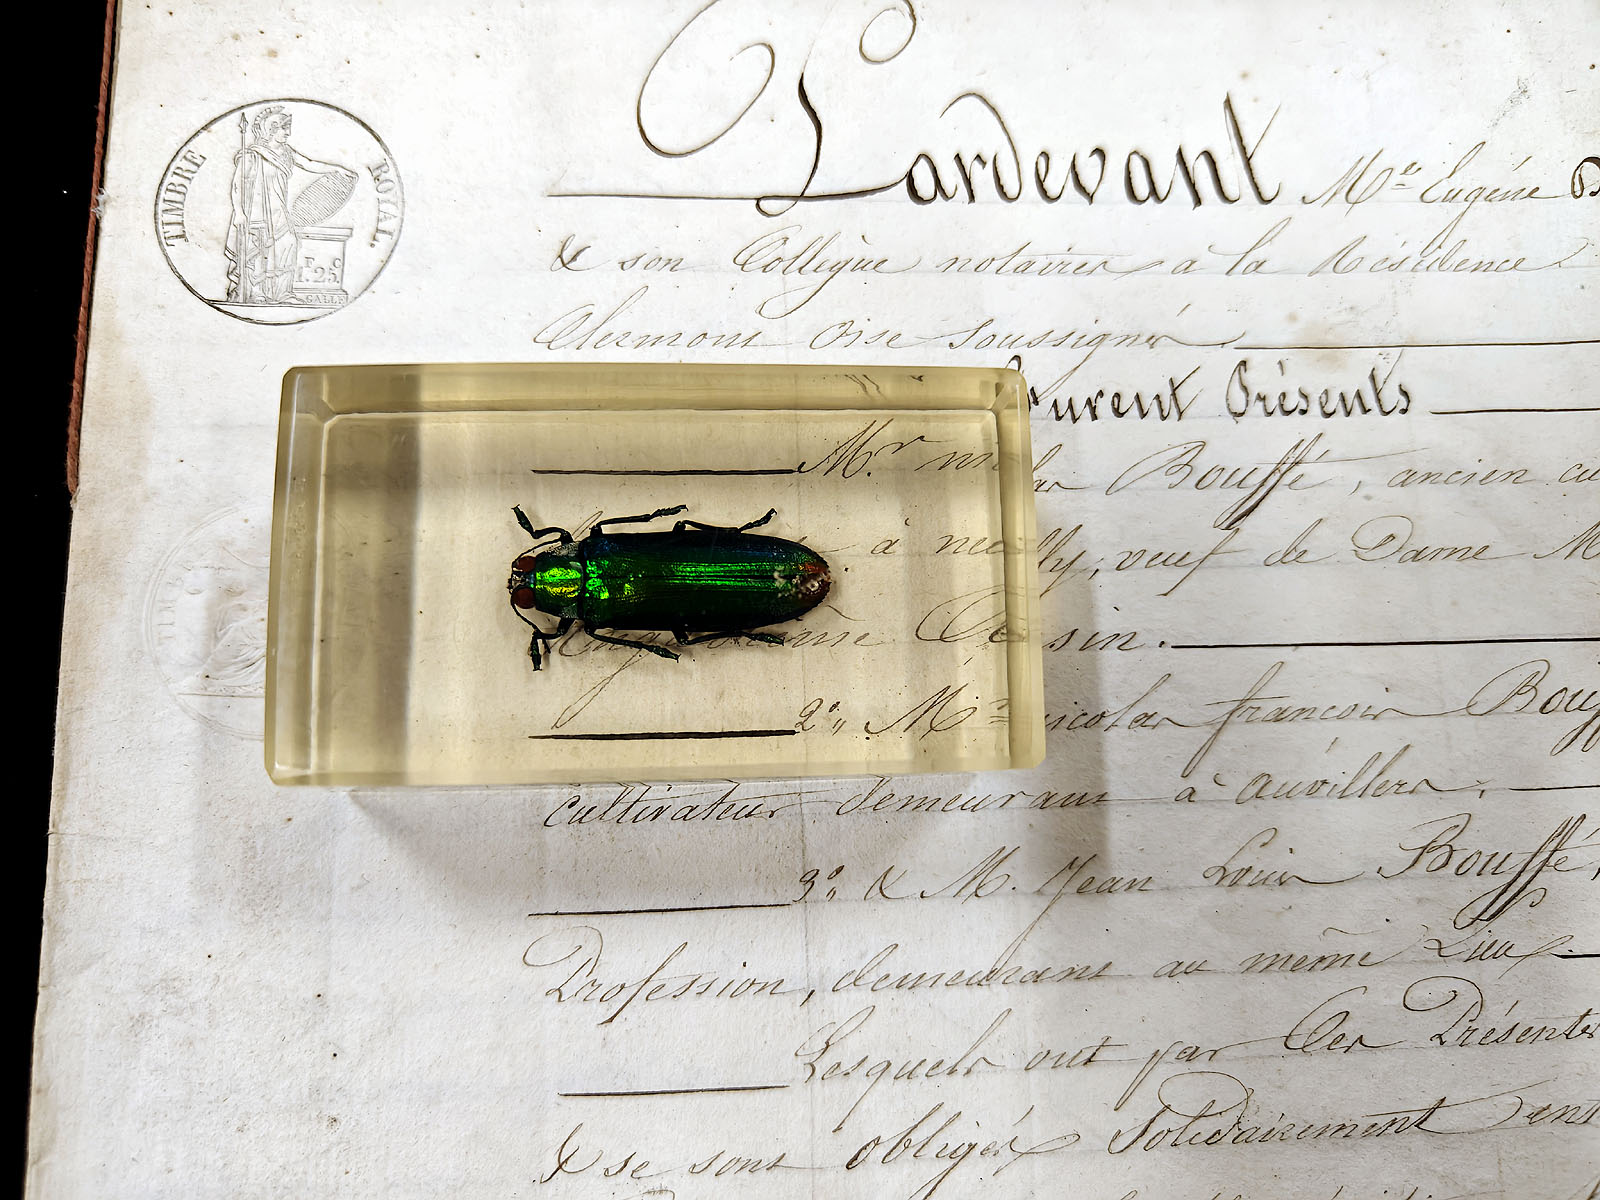 TIMBRE ROYAL.
F C
1.25.
GALLE
Pardevant Me Eugéne
& son Collègue notaires à la Résidence
Clermont Oise soussignés
furent Présents
Mr Bouffé, ancien cu
à neuilly, veuf de Dame M
sin.
2° Mr nicolas francois Bouf
cultivateur demeurant à auvillers,
3° & M. Jean Louis Bouffé,
Profession, demeurant au même Lieu
Lesquels ont par Ces Présentes
& se sont obligés Solidairement ens